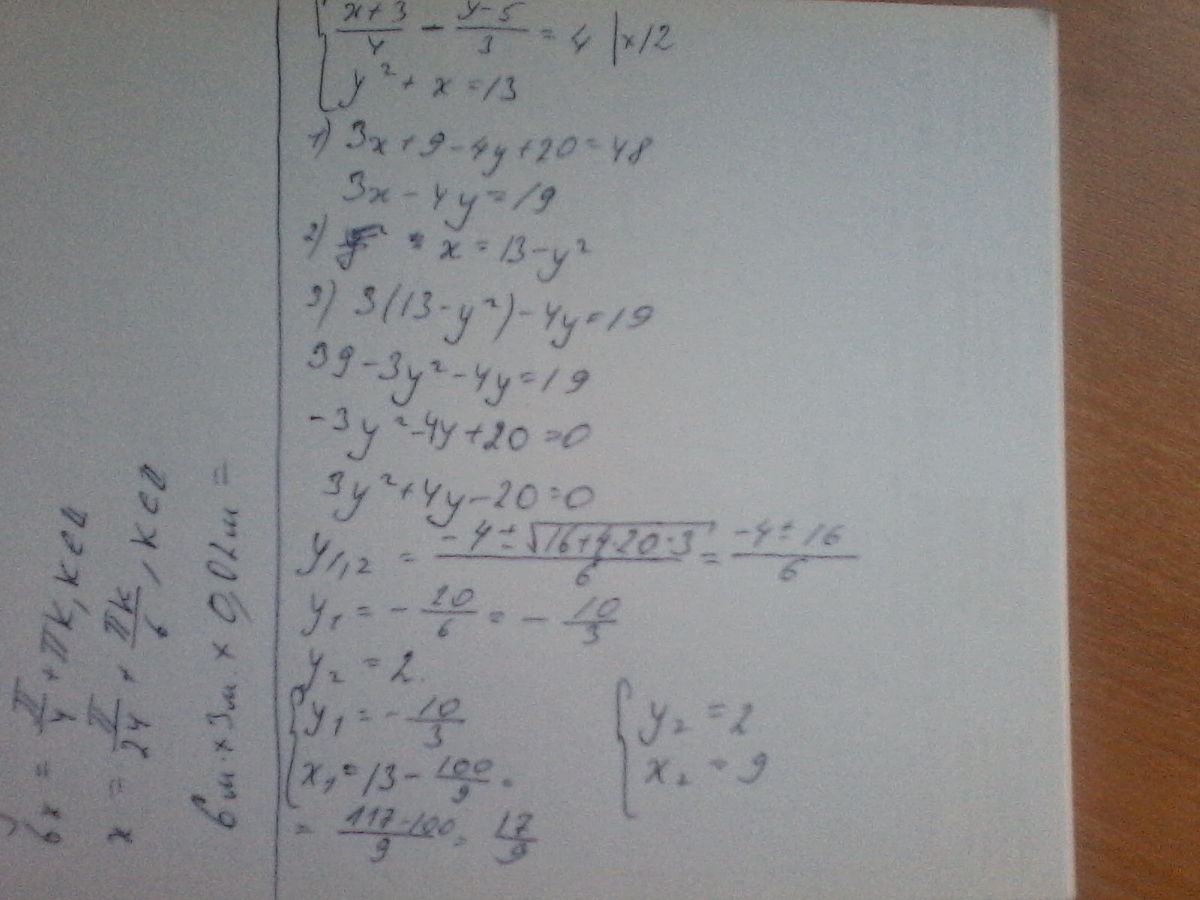 { x+3/4 - y-5/3 = 4 |x12
y² + x = 13
1) 3x+9-4y+20=48
3x-4y=19
2) x = 13-y²
3) 3(13-y²)-4y=19
39-3y²-4y=19
-3y²-4y+20=0
3y²+4y-20=0
y1,2 = -4±√16+4·20·3/6 = -4±16/6
y1 = - 20/6 = - 10/3
y2 = 2.
{ y1 = - 10/3
x1 = 13 - 100/9 =
= 117-100/9 = 17/9
{ y2 = 2
x2 = 9
6x = π/4 + πk, k∈Z
x = π/24 + πk/6, k∈Z
6м. x 3м. x 0,02м =